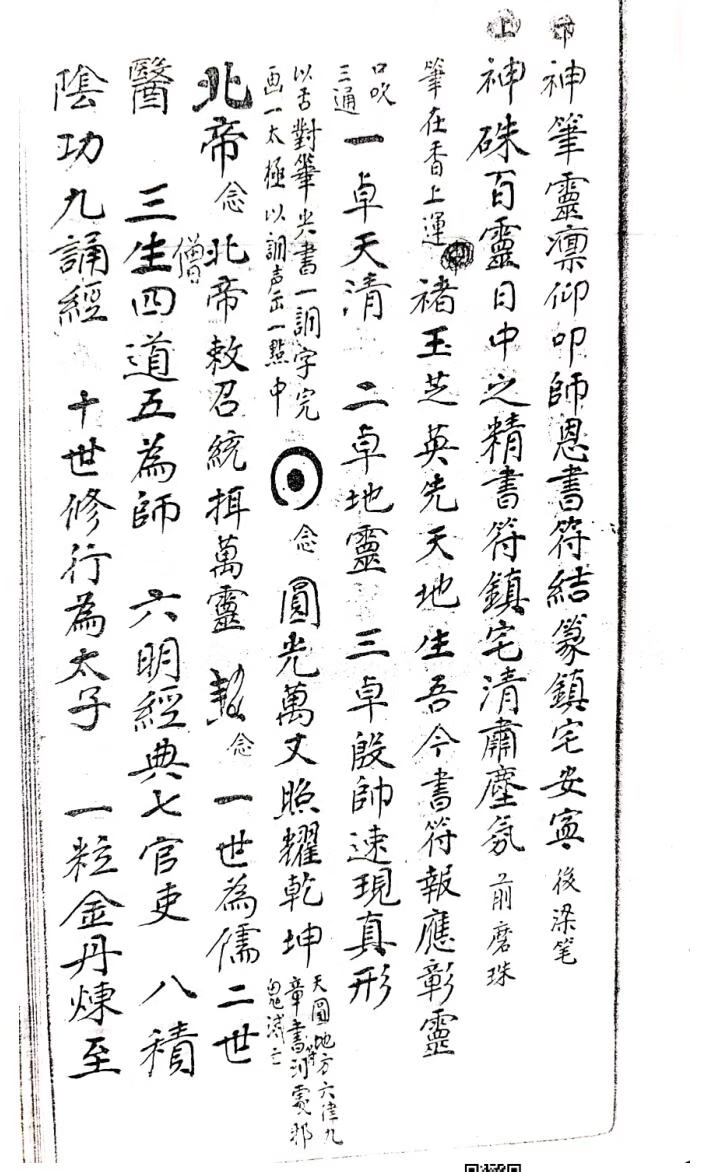 神筆靈凛仰叩師恩書符結篆鎮宅安寍 後染笔
上神硃百靈日中之精書符鎮宅清肅塵氛 前磨珠
筆在香上運 褚玉芝英先天地生吾今書符報應彰靈
口吹三通 一卓天清 二卓地靈 三卓殷帥速現真形
以舌對筆尖書一調字完
画一太極以調声击一點中 念 圓光萬丈照耀乾坤 天圓地方六律九
章書符河處邪
鬼滅亡
北帝 念 北帝敕召統揖萬靈 念 一世為儒二世
醫 三生僧四道五為師 六明經典七官吏 八積
陰功九誦經 十世修行為太子 一粒金丹煉至